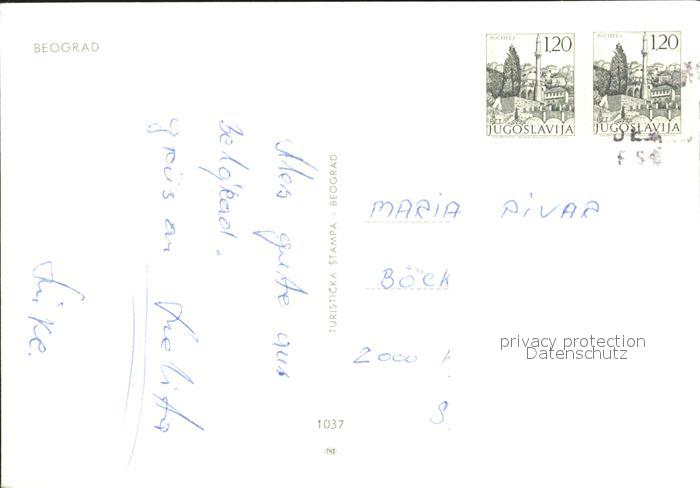 BEOGRAD
POČITELJ
1,20
JUGOSLAVIJA
POČITELJ
1,20
JUGOSLAVIJA
Alles gute aus
Belgrad.
Grüs an
TURISTIČKA ŠTAMPA - BEOGRAD
1037
MARIA
BÖCK
2000
S
privacy protection
Datenschutz